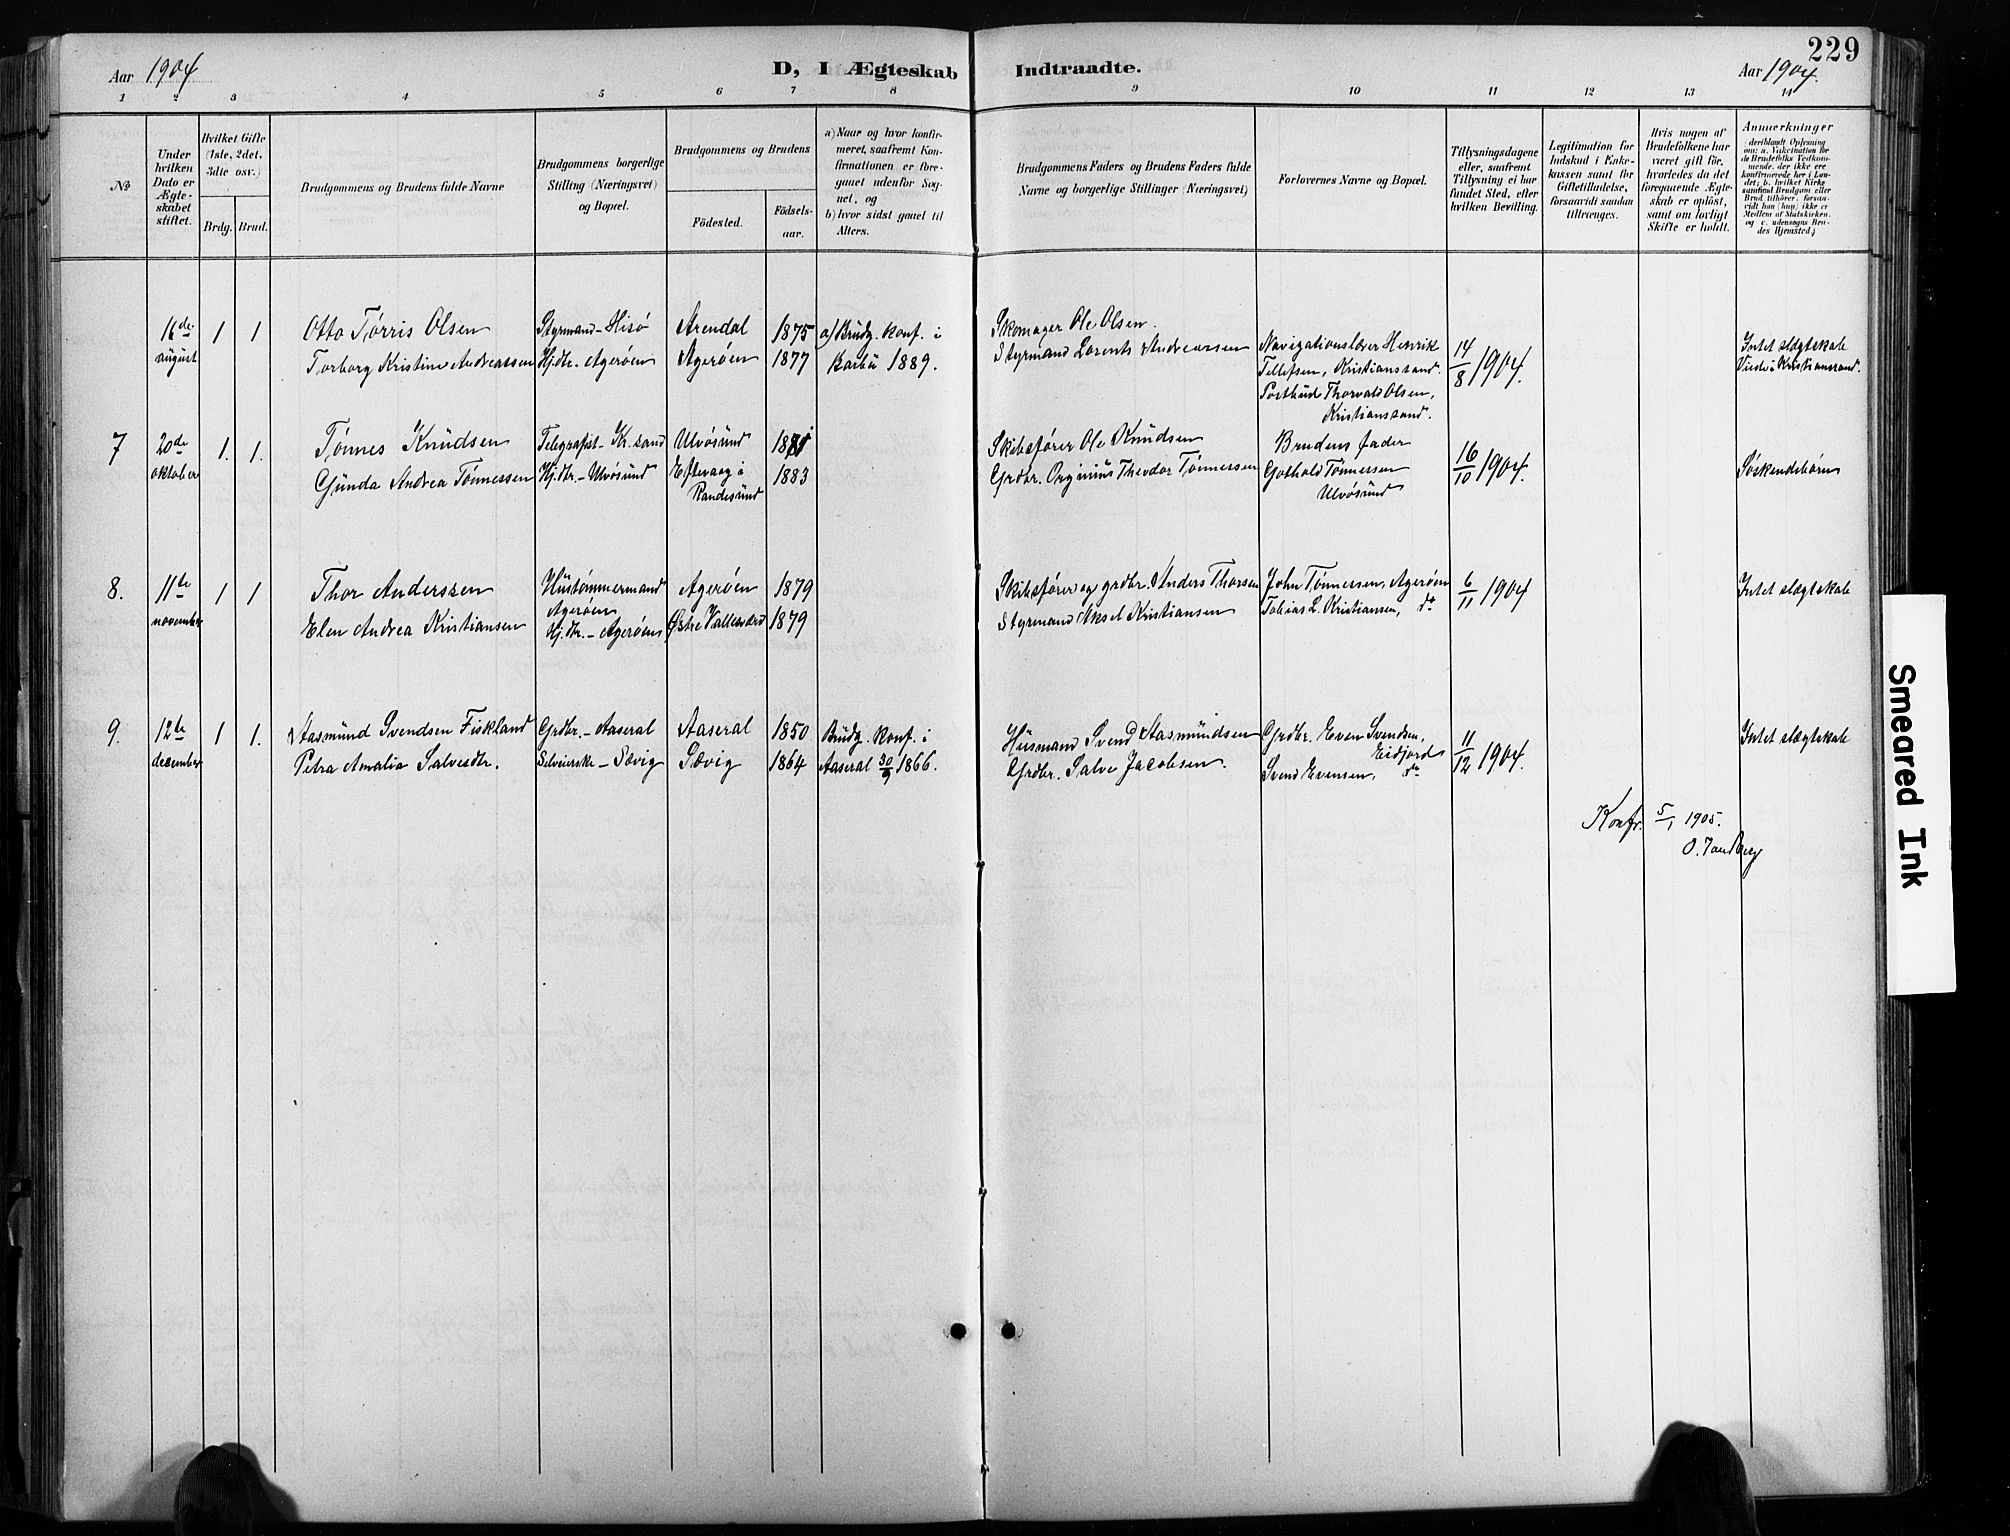 229
Aar 1904
D, I Ægteskab Indtraadte.
Aar 1904.
1 2 3 4 5 6 7 8 9 10 11 12 13 14
№
Under hvilken Dato er Ægteskabet stiftet.
Hvilket Gifte (1ste, 2det, 3die osv.)
Brdg. Brud.
Brudgommens og Brudens fulde Navne
Brudgommens borgerlige Stilling (Næringsvei) og Bopæl.
Brudgommens og Brudens
Födested.
Födselsaar.
a) Naar og hvor konfirmeret, saafremt Konfirmationen er foregaaet udenfor Sognet, og
b) hvor sidst gaaet til Alters.
Brudgommens Faders og Brudens Faders fulde Navne og borgerlige Stillinger (Næringsvei)
Forlovernes Navne og Bopæl.
Tillysningsdagene eller, saafremt Tillysning ei har fundet Sted, efter hvilken Bevilling.
Legitimation for Indskud i Enkekassen samt for Giftetilladelse, forsaavidt saadan tiltrænges.
Hvis nogen af Brudefolkene har været gift för, hvorledes da det foregaaende Ægteskab er oplöst, samt om lovligt Skifte er holdt.
Anmerkninger (deriblandt Oplysning om: a. Vakcination for de Brudefolks Vedkommende, der ikke ere konfirmerede her i Landet; b. hvilket Kirkesamfund Brudgom eller Brud tilhörer, forsaavidt han (hun) ikke er Medlem af Statskirken, og c. udensogns Brudes Hjemsted.)
16de august 1 1 Otto Tørris Olsen Styrmand - Hisø Arendal 1875 a) Brudg. konf. i Skomager Ole Olsen.
Torborg Kristine Andreassen Hj.dtr. Agerøen Agerøen 1877 Barbu 1889. Styrmand Lorents Andreassen
Navigationslærer Henrik
Tellefsen, Kristianssand.
Postbud Thorvald Olsen,
Kristianssand.
14/8 1904.
Intet slægtskab
Viede i Kristianssand.
7 20de oktober 1. 1. Tønnes Knudsen Telegrafist - Kr.sand Ulvøsund Skibsfører Ole Knudsen
Gunda Andrea Tønnessen Hj.dtr. - Ulvøsund Eftevaag i Randesund 1883 Grdbr. Orginius Theodor Tønnessen
Brudens fader
Gothold Tønnessen
Ulvøsund
16/10 1904.
Søskendebørn
8. 11te november 1 1 Thor Anderssen Hustømmermand Agerøen Agerøen 1879 Skibsfører og grdbr. Anders Thorsen
Elen Andrea Kristiansen Hj.dtr. - Agerøen Østre Vallesverd 1879 Styrmand Aksel Kristiansen
John Tønnessen, Agerøen
Tobias L. Kristiansen, do
6/11 1904
Intet slægtskab
9. 12te desember 1 1. Aasmund Svendsen Fiskland Grdbr. - Aaseral Aaseral 1850 Brudg. konf. i Husmand Svend Aasmundsen
Petra Amalia Salvesdtr. Selveierske - Sævig Sævig 1864 Aaseral 30/9 1866. Grdbr. Salve Jacobsen.
Grdbr. Even Svendsen,
Eidjord
Svend Evensen, do
11/12 1904.
Intet slægtskab
Konfr. 5/1 1905.
O. Tandberg
Smeared Ink